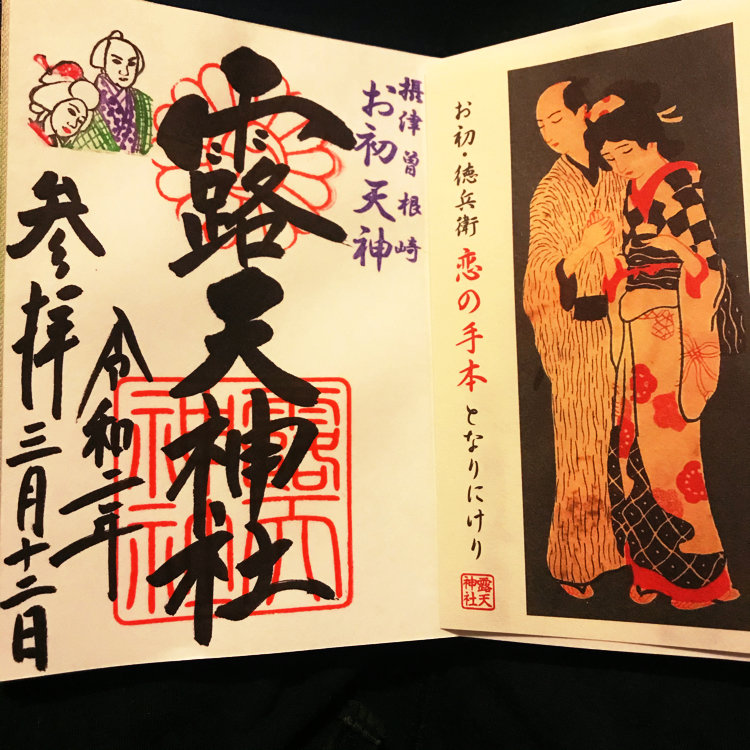 お初・徳兵衛 恋の手本 となりにけり
露天
神社
摂津曽根崎
お初天神
露天神社
露天
神社
令和二年
参拝 三月十二日